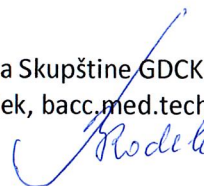 a Skupštine GDCK
ek, bacc.med.tech